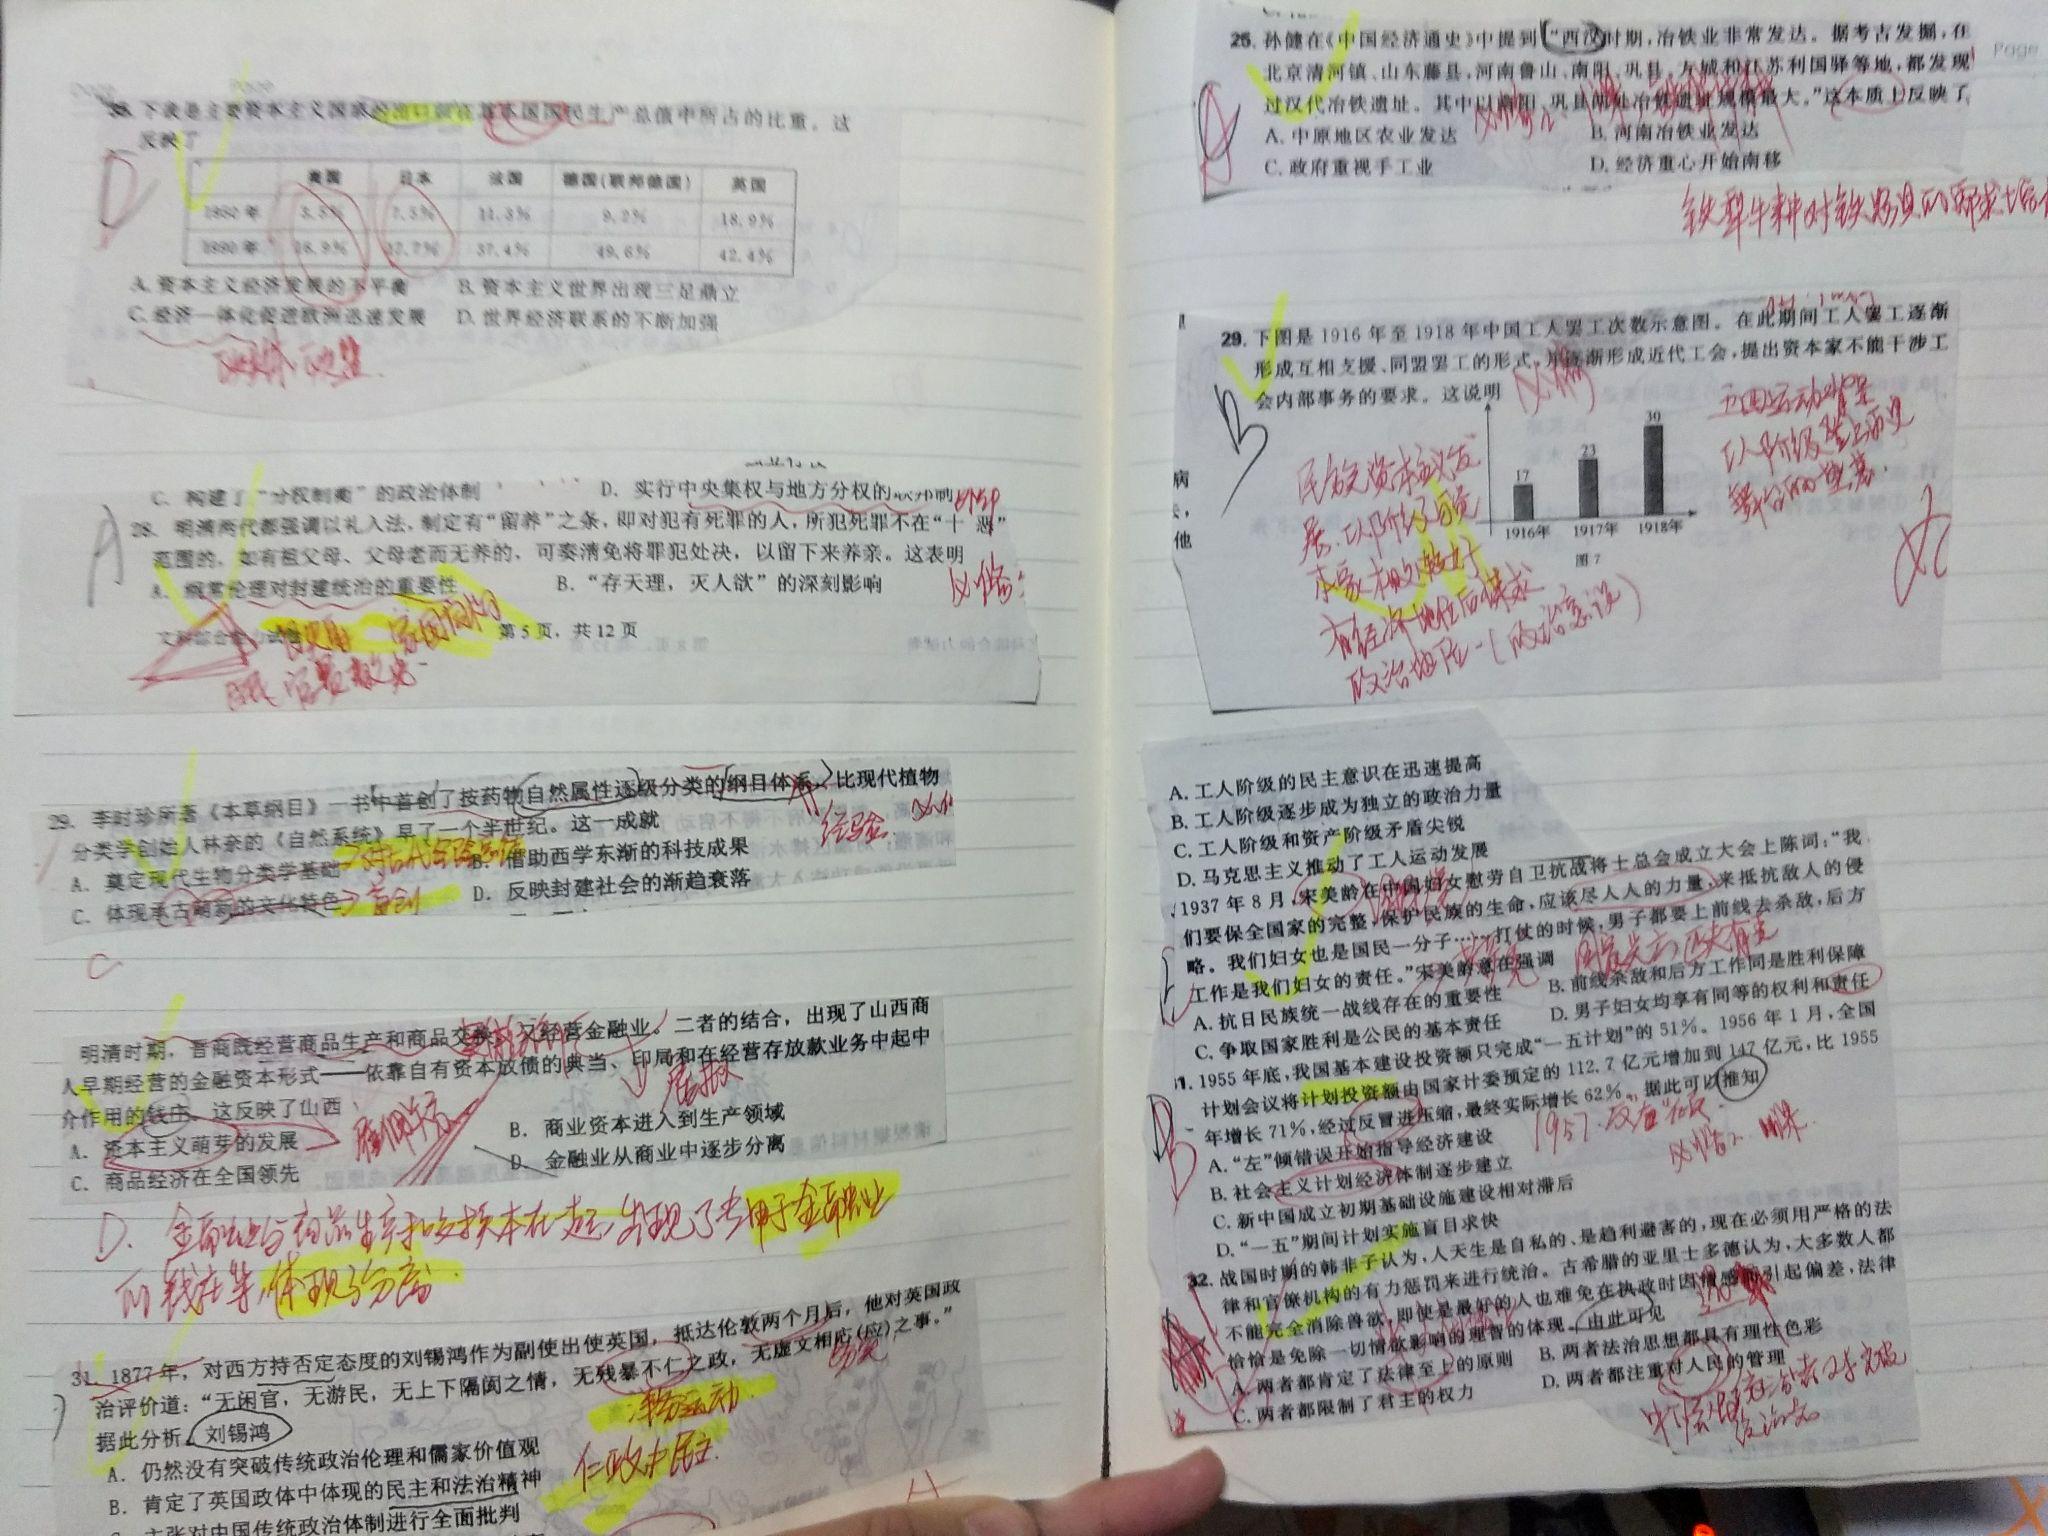 35. 下表是主要资本主义国家的出口额在其本国国民生产总值中所占的比重。这
反映了
美国 日本 法国 德国(联邦德国) 英国
1950年 3.3% 7.5% 11.3% 9.2% 18.9%
1990年 16.9% 17.7% 37.4% 49.6% 42.4%
A. 资本主义经济发展的不平衡 B. 资本主义世界出现三足鼎立
C. 经济一体化促进欧洲迅速发展 D. 世界经济联系的不断加强
D
C. 构建了“分权制衡”的政治体制 D. 实行中央集权与地方分权的联邦制
A
28. 明清两代都强调以礼入法,制定有“留养”之条,即对犯有死罪的人,所犯死罪不在“十恶”
范围的,如有祖父母、父母老而无养的,可奏请免将罪犯处决,以留下来养亲。这表明
A. 纲常伦理对封建统治的重要性 B. “存天理,灭人欲”的深刻影响
第5页,共12页
家国同构
29. 李时珍所著《本草纲目》一书中首创了按药物自然属性逐级分类的纲目体系,比现代植物
分类学创始人林奈的《自然系统》早了一个半世纪。这一成就
A. 奠定现代生物分类学基础 B. 借助西学东渐的科技成果
C. 体现承古萌新的文化特色 D. 反映封建社会的渐趋衰落
→首创
C
明清时期,晋商既经营商品生产和商品交换,又经营金融业。二者的结合,出现了山西商
人早期经营的金融资本形式——依靠自有资本放债的典当、印局和在经营存放款业务中起中
介作用的钱庄。这反映了山西
A. 资本主义萌芽的发展 B. 商业资本进入到生产领域
C. 商品经济在全国领先 D. 金融业从商业中逐步分离
雇佣关系
D. 金融业与商品生产和交换本在一起,出现了专用于金融业
的钱庄等,体现了分离.
31. 1877年,对西方持否定态度的刘锡鸿作为副使出使英国,抵达伦敦两个月后,他对英国政
治评价道:“无闲官,无游民,无上下隔阂之情,无残暴不仁之政,无虚文相应(应)之事。”
据此分析,刘锡鸿
A. 仍然没有突破传统政治伦理和儒家价值观
B. 肯定了英国政体中体现的民主和法治精神
C. 主张对中国传统政治体制进行全面批判
洋务运动
仁政≠民主.
A
25. 孙健在《中国经济通史》中提到“西汉时期,冶铁业非常发达。据考古发掘,在
北京清河镇、山东藤县,河南鲁山、南阳、巩县、方城和江苏利国驿等地,都发现
过汉代冶铁遗址。其中以南阳、巩县两处冶铁遗址规模最大。”这本质上反映了
A. 中原地区农业发达 B. 河南冶铁业发达
C. 政府重视手工业 D. 经济重心开始南移
A
Page
铁犁牛耕对铁农具的需求增
29. 下图是1916年至1918年中国工人罢工次数示意图。在此期间工人罢工逐渐
形成互相支援、同盟罢工的形式,并逐渐形成近代工会,提出资本家不能干涉工
会内部事务的要求。这说明
B
17 23 30
1916年 1917年 1918年
图7
民族资本主义发
展.工人阶级而
有经济地位后谋求
政治地位.(政治意识)
五四运动背景
工人阶级登上历史
舞台的背景.
病
他
A. 工人阶级的民主意识在迅速提高
B. 工人阶级逐步成为独立的政治力量
C. 工人阶级和资产阶级矛盾尖锐
D. 马克思主义推动了工人运动发展
1937年8月,宋美龄在中国妇女慰劳自卫抗战将士总会成立大会上陈词:“我
们要保全国家的完整,保护民族的生命,应该尽人人的力量,来抵抗敌人的侵
略。我们妇女也是国民一分子……打仗的时候,男子都要上前线去杀敌,后方
工作是我们妇女的责任。”宋美龄意在强调
国家兴亡,匹夫有责
A. 抗日民族统一战线存在的重要性 B. 前线杀敌和后方工作同是胜利保障
C. 争取国家胜利是公民的基本责任 D. 男子妇女均享有同等的权利和责任
1. 1955年底,我国基本建设投资额只完成“一五计划”的51%。1956年1月,全国
计划会议将计划投资额由国家计委预定的112.7亿元增加到147亿元,比1955
年增长71%,经过反冒进压缩,最终实际增长62%。据此可以推知
A. “左”倾错误开始指导经济建设
B. 社会主义计划经济体制逐步建立
C. 新中国成立初期基础设施建设相对滞后
D. “一五”期间计划实施盲目求快
B
32. 战国时期的韩非子认为,人天生是自私的、是趋利避害的,现在必须用严格的法
律和官僚机构的有力惩罚来进行统治。古希腊的亚里士多德认为,大多数人都
不能完全消除兽欲,即使是最好的人也难免在执政时因情感而引起偏差,法律
恰恰是免除一切情欲影响的理智的体现。由此可见
A. 两者都肯定了法律至上的原则 B. 两者法治思想都具有理性色彩
C. 两者都限制了君主的权力 D. 两者都注重对人民的管理